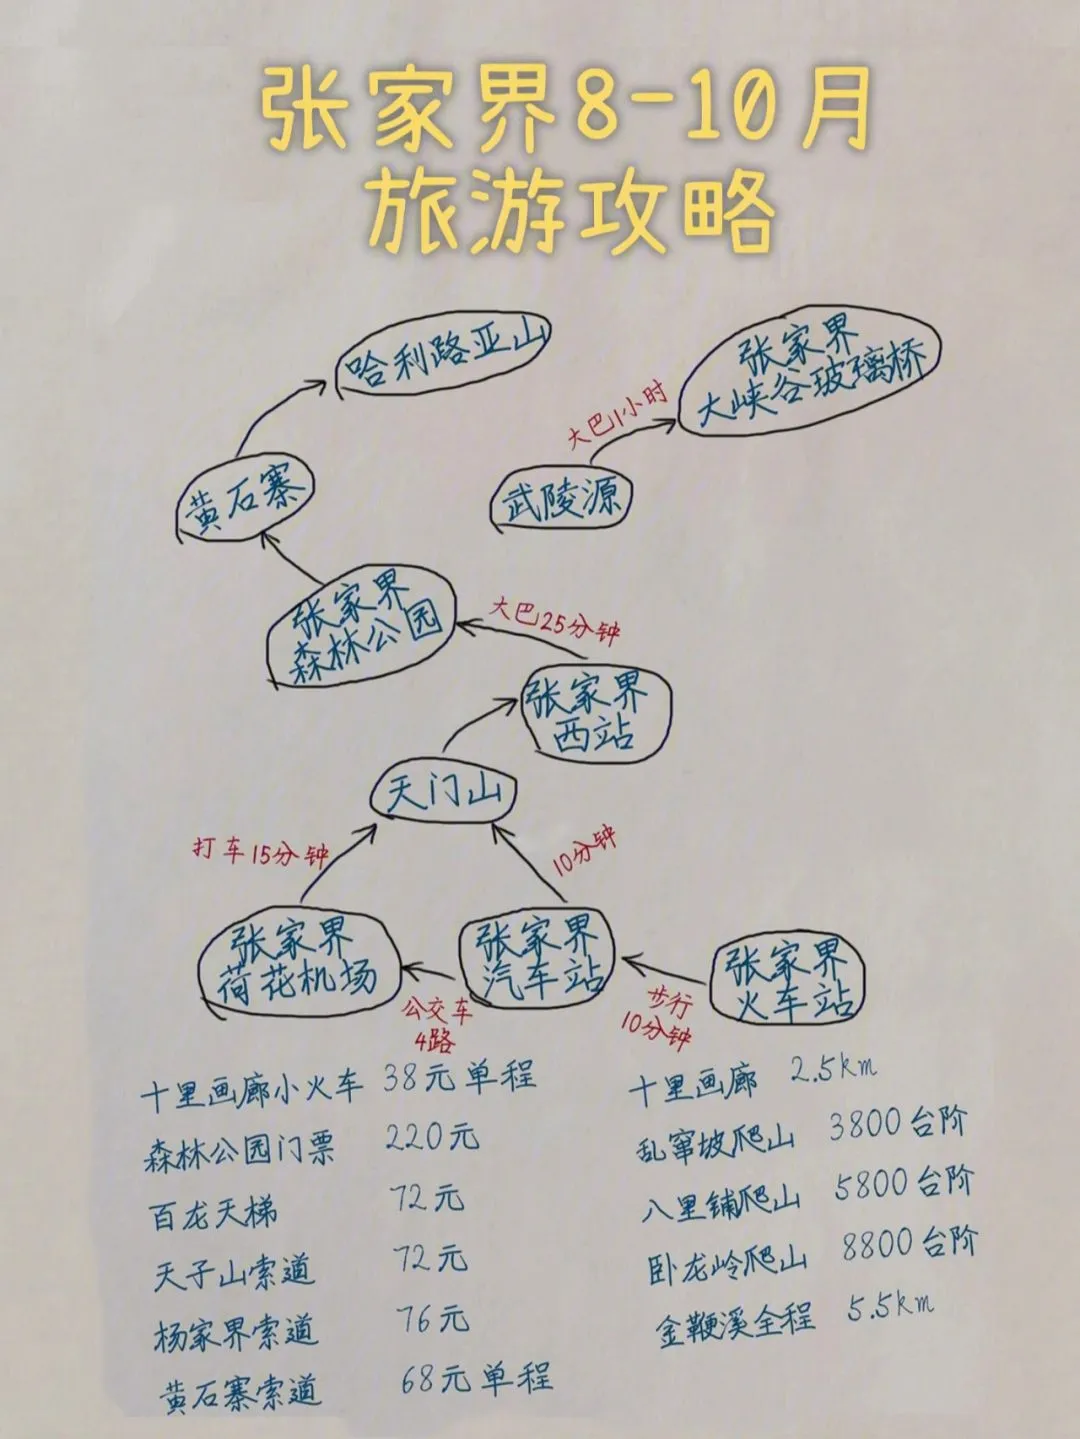 张家界8-10月
旅游攻略
哈利路亚山
张家界
大峡谷玻璃桥
大巴1小时
黄石寨
武陵源
张家界
森林公园
大巴25分钟
张家界
西站
天门山
打车15分钟
10分钟
张家界
荷花机场
张家界
汽车站
张家界
火车站
公交车
4路
步行
10分钟
十里画廊小火车 38元单程
森林公园门票 220元
百龙天梯 72元
天子山索道 72元
杨家界索道 76元
黄石寨索道 68元单程
十里画廊 2.5km
乱窜坡爬山 3800台阶
八里铺爬山 5800台阶
卧龙岭爬山 8800台阶
金鞭溪全程 5.5km